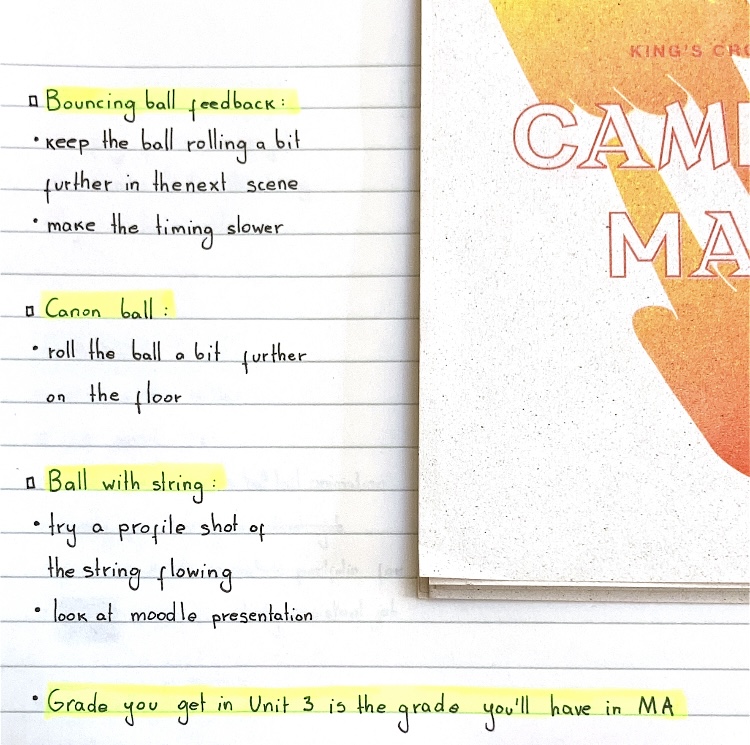 Bouncing ball feedback:
• keep the ball rolling a bit
further in thenext scene
• make the timing slower
Canon ball:
• roll the ball a bit further
on the floor
Ball with string:
• try a profile shot of
the string flowing
• look at moodle presentation
• Grade you get in Unit 3 is the grade you'll have in MA
KING'S CRO
CAM
MA